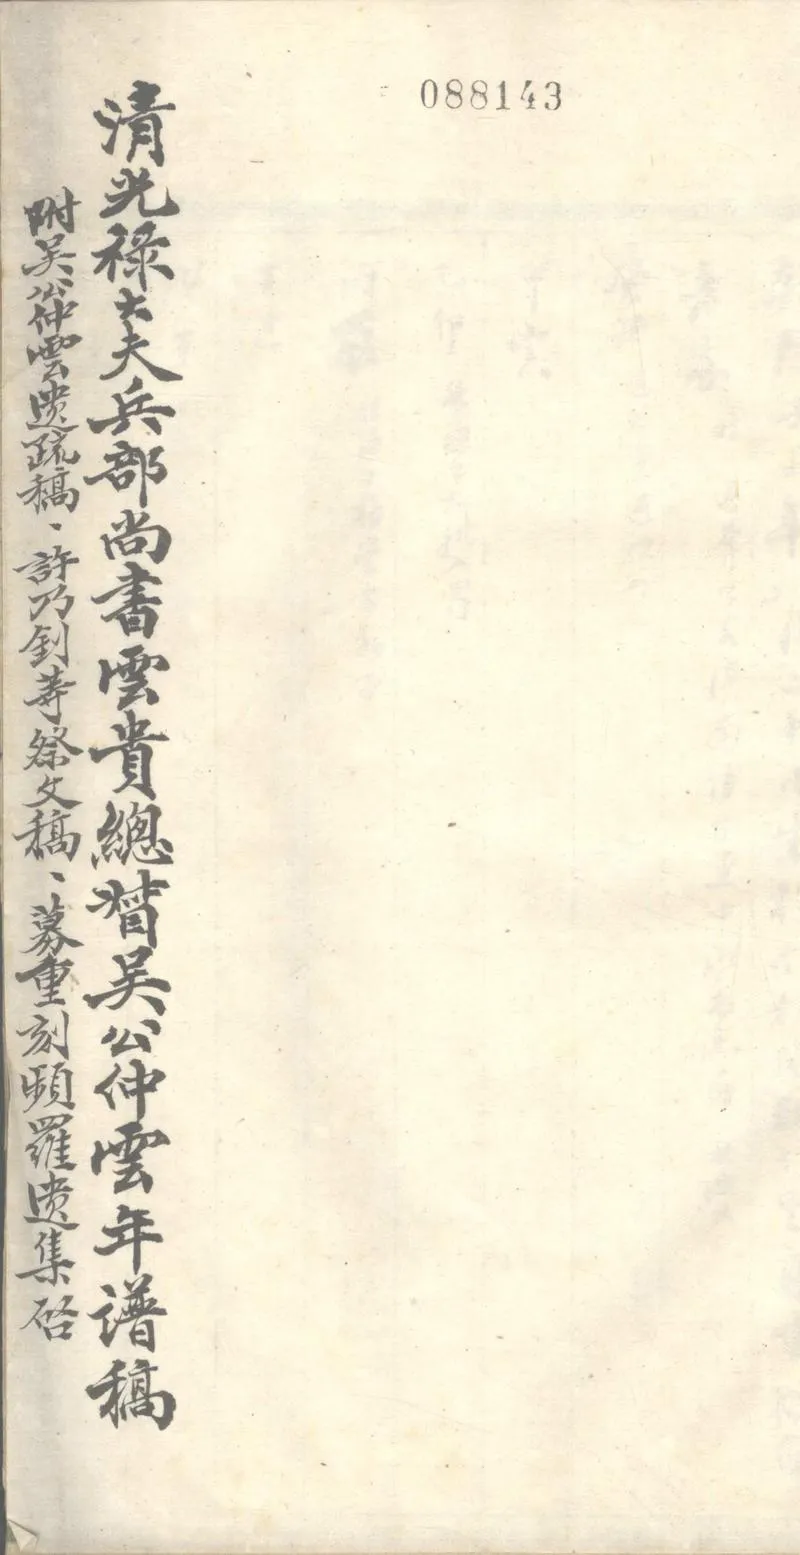 088143
清光祿大夫兵部尚書雲貴總督吳公仲雲年譜稿
附吳公仲雲遺疏稿、許乃釗等祭文稿、募重刻頻羅遺集啟